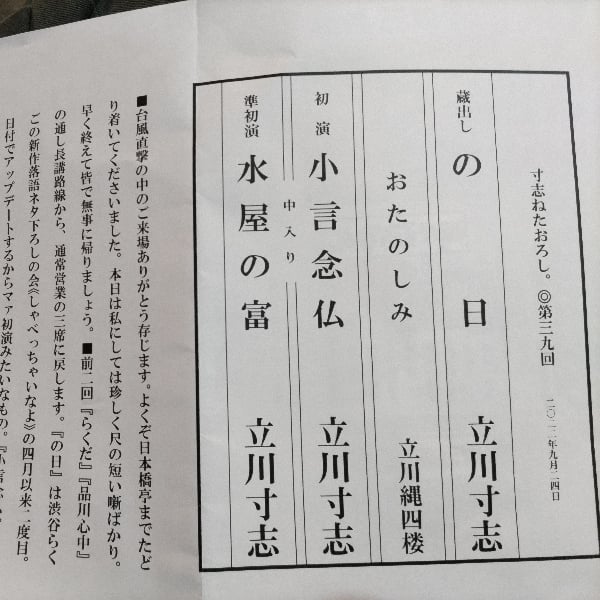 寸志ねたおろし。◎第三九回
二〇二二年九月二四日
蔵出し の日 立川寸志
おたのしみ 立川縄四楼
初演 小言念仏 立川寸志
中入り
準初演 水屋の富 立川寸志
■台風直撃の中のご来場ありがとう存じます。よくぞ日本橋亭までたど
り着いてくださいました。本日は私にしては珍しく尺の短い噺ばかり。
早く終えて皆で無事に帰りましょう。■前二回『らくだ』『品川心中』
の通し長講路線から、通常営業の三席に戻します。『の日』は渋谷らく
ごの新作落語ネタ下ろしの会《しゃべっちゃいなよ》の四月以来二度目。
日付でアップデートするからマァ初演みたいなもの。『小言念仏